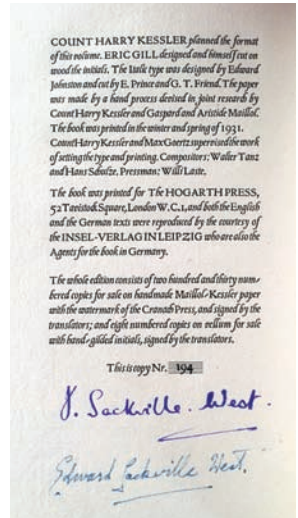 COUNT HARRY KESSLER planned the format
of this volume. ERIC GILL designed and himself cut on
wood the initials. The Italic type was designed by Edward
Johnston and cut by E. Prince and G. T. Friend. The paper
was made by a hand process devised in joint research by
Count Harry Kessler and Gaspard and Aristide Maillol.
The book was printed in the winter and spring of 1931.
Count Harry Kessler and Max Goertz supervised the work
of setting the type and printing. Compositors: Walter Tanz
and Hans Schulze. Pressman: Willi Laste.
The book was printed for The HOGARTH PRESS,
52 Tavistock Square, London W.C.1, and both the English
and the German texts were reproduced by the courtesy of
the INSEL-VERLAG IN LEIPZIG who are also the
Agents for the book in Germany.
The whole edition consists of two hundred and thirty num-
bered copies for sale on handmade Maillol-Kessler paper
with the watermark of the Cranach Press, and signed by the
translators; and eight numbered copies on vellum for sale
with hand-gilded initials, signed by the translators.
This is copy Nr. 194
V. Sackville-West.
Edward Sackville West.